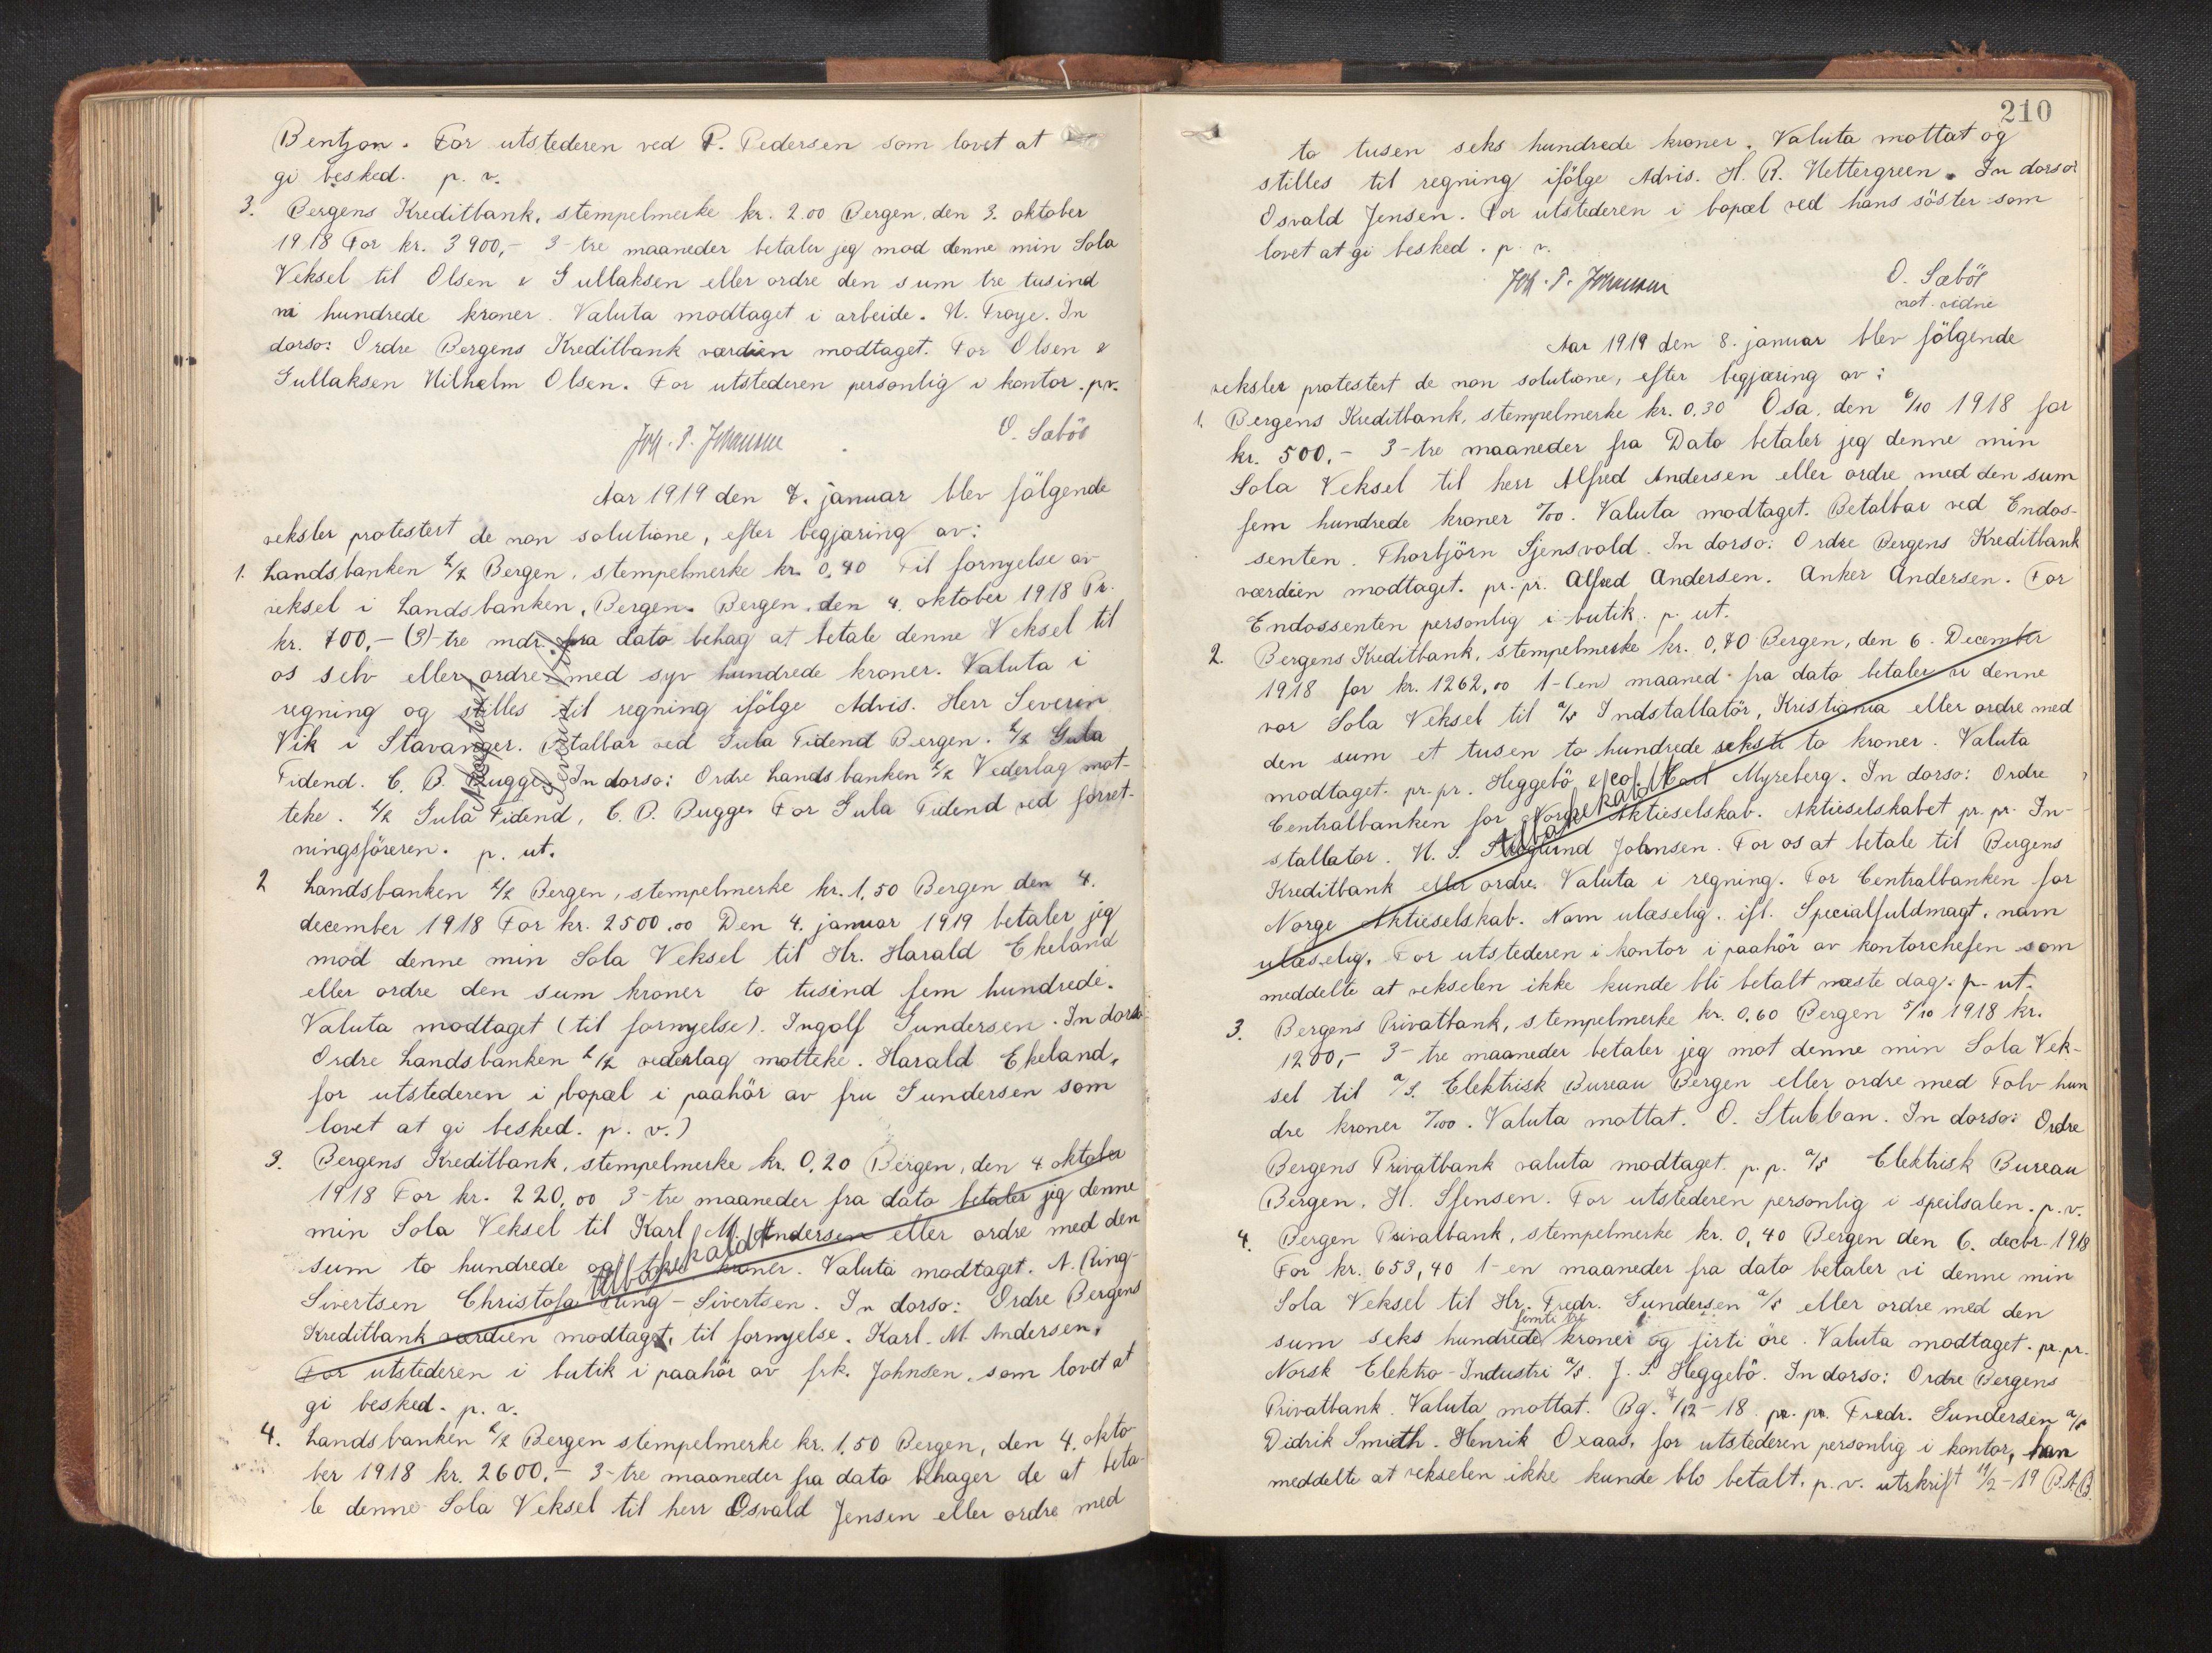 Bentzon. For utstederen ved P. Pedersen som lovet at
gi besked. p. v.
3. Bergens Kreditbank, stempelmerke kr. 2.00 Bergen, den 3. oktober
1918 For kr. 3900,- 3-tre maaneder betaler jeg mod denne min Sola
Veksel til Olsen & Gullaksen eller ordre den sum tre tusind
ni hundrede kroner. Valuta modtaget i arbeide. N. Froye. In
dorso: Ordre Bergens Kreditbank værdien modtaget. For Olsen &
Gullaksen Wilhelm Olsen. For utstederen personlig i kontor. pv.
O. Sæbös
Aar 1919 den 7. januar blev fölgende
veksler protestert de non solutione, efter begjæring av:
1. Landsbanken L/L Bergen, stempelmerke kr. 0,40 Til fornyelse av
veksel i Landsbanken, Bergen. Bergen, den 4. oktober 1918 Pr.
kr. 700,- (3)-tre mdr. fra dato behag at betale denne Veksel til
os selv eller ordre med syv hundrede kroner. Valuta i
regning og stilles til regning ifölge Advis. Herr Severin
Vik i Stavanger. Betalbar ved Gula Tidend Bergen. L/L Gula
Tidend. C. B. Bugge. In dorso: Ordre Landsbanken L/L Vederlag mot-
teke. L/L Gula Tidend, C. B. Bugge. For Gula Tidend ved forret-
ningsföreren. p. ut.
Akcepteret
Severin Vik
2 Landsbanken L/L Bergen, stempelmerke kr. 1,50 Bergen den 4.
december 1918 For kr. 2500.00 Den 4. januar 1919 betaler jeg
mod denne min Sola Veksel til Hr. Harald Ekeland
eller ordre den sum kroner to tusind fem hundrede.
Valuta modtaget (til fornyelse). Ingolf Gundersen. In dorso
Ordre Landsbanken L/L vederlag motteke. Harald Ekeland,
for utstederen i bopæl i paahör av fru Gundersen som
lovet at gi besked. p. v.)
3. Bergens Kreditbank, stempelmerke kr. 0,20 Bergen, den 4 oktober
1918 For kr. 220,00 3-tre maaneder fra dato betaler jeg denne
min Sola Veksel til Karl M. Andersen eller ordre med den
sum to hundrede og kroner. Valuta modtaget. A. Ring-
tilbakekaldt
Sivertsen Christofa Ring-Sivertsen. In dorso: Ordre Bergens
Kreditbank værdien modtaget, til fornyelse. Karl. M. Andersen,
For utstederen i butik i paahör av frk. Johnsen, som lovet at
gi besked. p. v.
4. Landsbanken L/L Bergen stempelmerke kr. 1,50 Bergen, den 4. okto
ber 1918 kr. 2600.- 3-tre maaneder fra dato behager de at beta-
le denne Sola Veksel til herr Osvald Jensen eller ordre med
210
to tusen seks hundrede kroner. Valuta mottat og
stilles til regning ifölge Advis. H. R. Wettergreen. In dorso:
Osvald Jensen. For utstederen i bopæl ved hans söster som
lovet at gi besked. p. v.
O. Sæbös
not. vidne
Aar 1919 den 8. januar blev fölgende
veksler protestert de non solutione, efter begjæring av:
1. Bergens Kreditbank, stempelmerke kr. 0,30 Osa, den 6/10 1918 for
kr. 500,- 3-tre maaneder fra Dato betaler jeg denne min
Sola Veksel til herr Alfred Andersen eller ordre med den sum
fem hundrede kroner 0/00. Valuta modtaget. Betalbar ved Endos-
senten. Thorbjörn Sjensvold. In dorso: Ordre Bergens Kreditbank
værdien modtaget. pr. pr. Alfred Andersen. Anker Andersen. For
Endossenten personlig i butik. p. ut.
2. Bergens Kreditbank, stempelmerke kr. 0,70 Bergen, den 6. December
1918 for kr. 1262,00 1-(en) maaned fra dato betaler vi denne
vor Sola Veksel til a/s Indstallatör, Kristiania eller ordre med
den sum et tusen to hundrede seksti to kroner. Valuta
modtaget. pr. pr. Heggebö & Co. Carl Myreberg. In dorso: Ordre
tilbakekaldt
Centralbanken for Norge Aktieselskab. Aktieselskabet pr. pr. In-
stallator. N. S. Johnsen. For os at betale til Bergens
Kreditbank eller ordre. Valuta i regning. For Centralbanken for
Norge Aktieselskab. Navn ulæselig. ifl. Specialfuldmagt, navn
ulæselig. For utstederen i kontor i paahör av kontorchefen som
meddelte at vekselen ikke kunde bli betalt næste dag. p. ut.
3. Bergens Privatbank, stempelmerke kr. 0.60 Bergen 5/10 1918 kr.
1200,- 3- tre maaneder betaler jeg mot denne min Sola Vek-
sel til a/s. Elektrisk Bureau Bergen eller ordre med Tolv hun
dre kroner 0/00. Valuta mottat. O. Stubban. In dorso: Ordre
Bergens Privatbank valuta modtaget. p. p. a/s Elektrisk Bureau
Bergen. H. Sfensen. For utstederen personlig i speilsalen. p. v.
4. Bergen Privatbank, stempelmerke kr. 0,40 Bergen den 6. decbr. 1918
For kr. 653,40 1-en maaneder fra dato betaler vi denne min
Sola Veksel til Hr. Fredr. Gundersen a/s eller ordre med den
femti tre
sum seks hundrede kroner og firti öre. Valuta modtaget. pr. pr.
Norsk Elektro-Industri a/s. J. S. Heggebö. In dorso: Ordre Bergens
Privatbank. Valuta mottat. Bg. 7/12-18 pr. pr. Fredr. Gundersen a/s
Didrik Smith. Henrik Oxaas, for utstederen personlig i kontor, han
meddelte at vekselen ikke kunde blo betalt. p. v. utskrift 11/2-19 B.A.B.